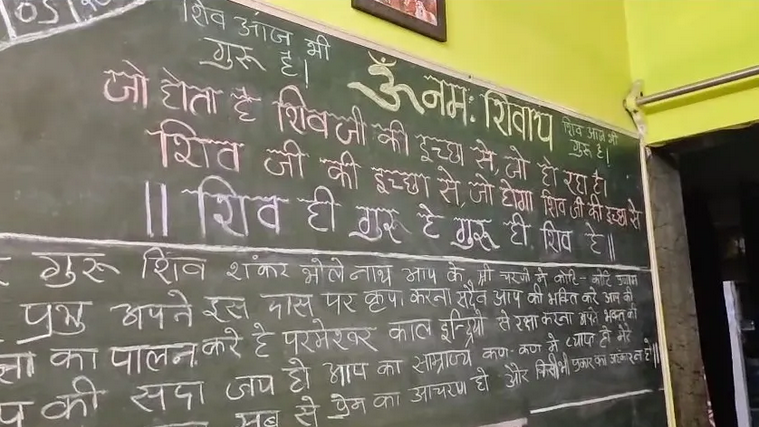 05
शिव आज भी
गुरू है।
ॐ नमः शिवाय
शिव आज भी
गुरू है।
जो होता है शिव जी की इच्छा से, जो हो रहा है।
शिव जी की इच्छा से, जो होगा शिव जी की इच्छा से
|| शिव ही गुरू है गुरू ही शिव है ||
गुरू शिव शंकर भोले नाथ आप के श्री चरणो में कोटि - कोटि प्रणाम
प्रभु अपने इस दास पर कृपा करना सदैव आप की भक्ति करे आप की
का पालन करे हे परमेश्वर काल इन्द्रियो से रक्षा करना अपने भक्त की
की सदा जय हो आप का साम्राज्य कण-कण में व्याप्त हो मेरे
सब से प्रेम का आचरण हो और किसी भी प्रकार का अहंकार न हो ||